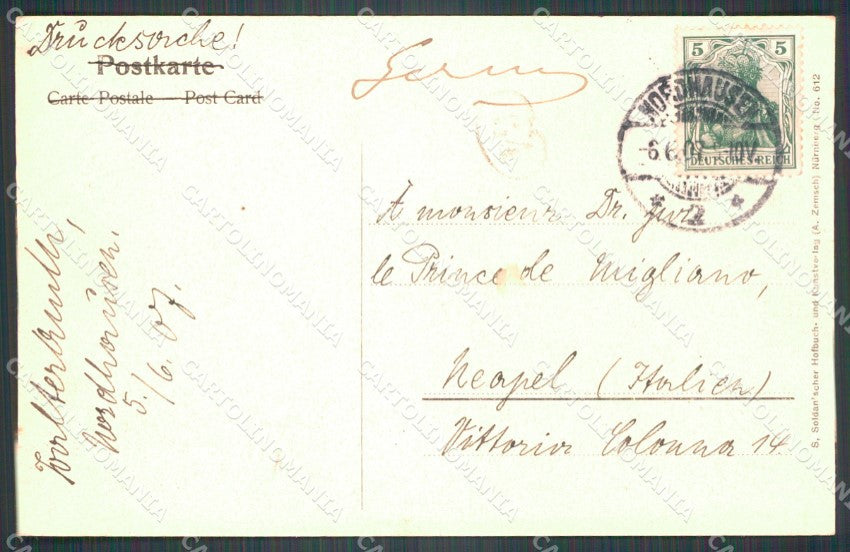 Drucksache!
Postkarte
Carte Postale — Post Card
Germ
5 5
DEUTSCHES REICH
NORDHAUSEN
-6.6.07. -10V.
* 2 *
A monsieur Dr. jur.
le Prince de Migliano,
Neapel (Italien)
Vittoria Colonna 14
Nordhausen.
5./6. 07.
S. Soldan'scher Hofbuch- und Kunstverlag (A. Zemsch) Nürnberg. No. 612
CARTOLINOMANIA